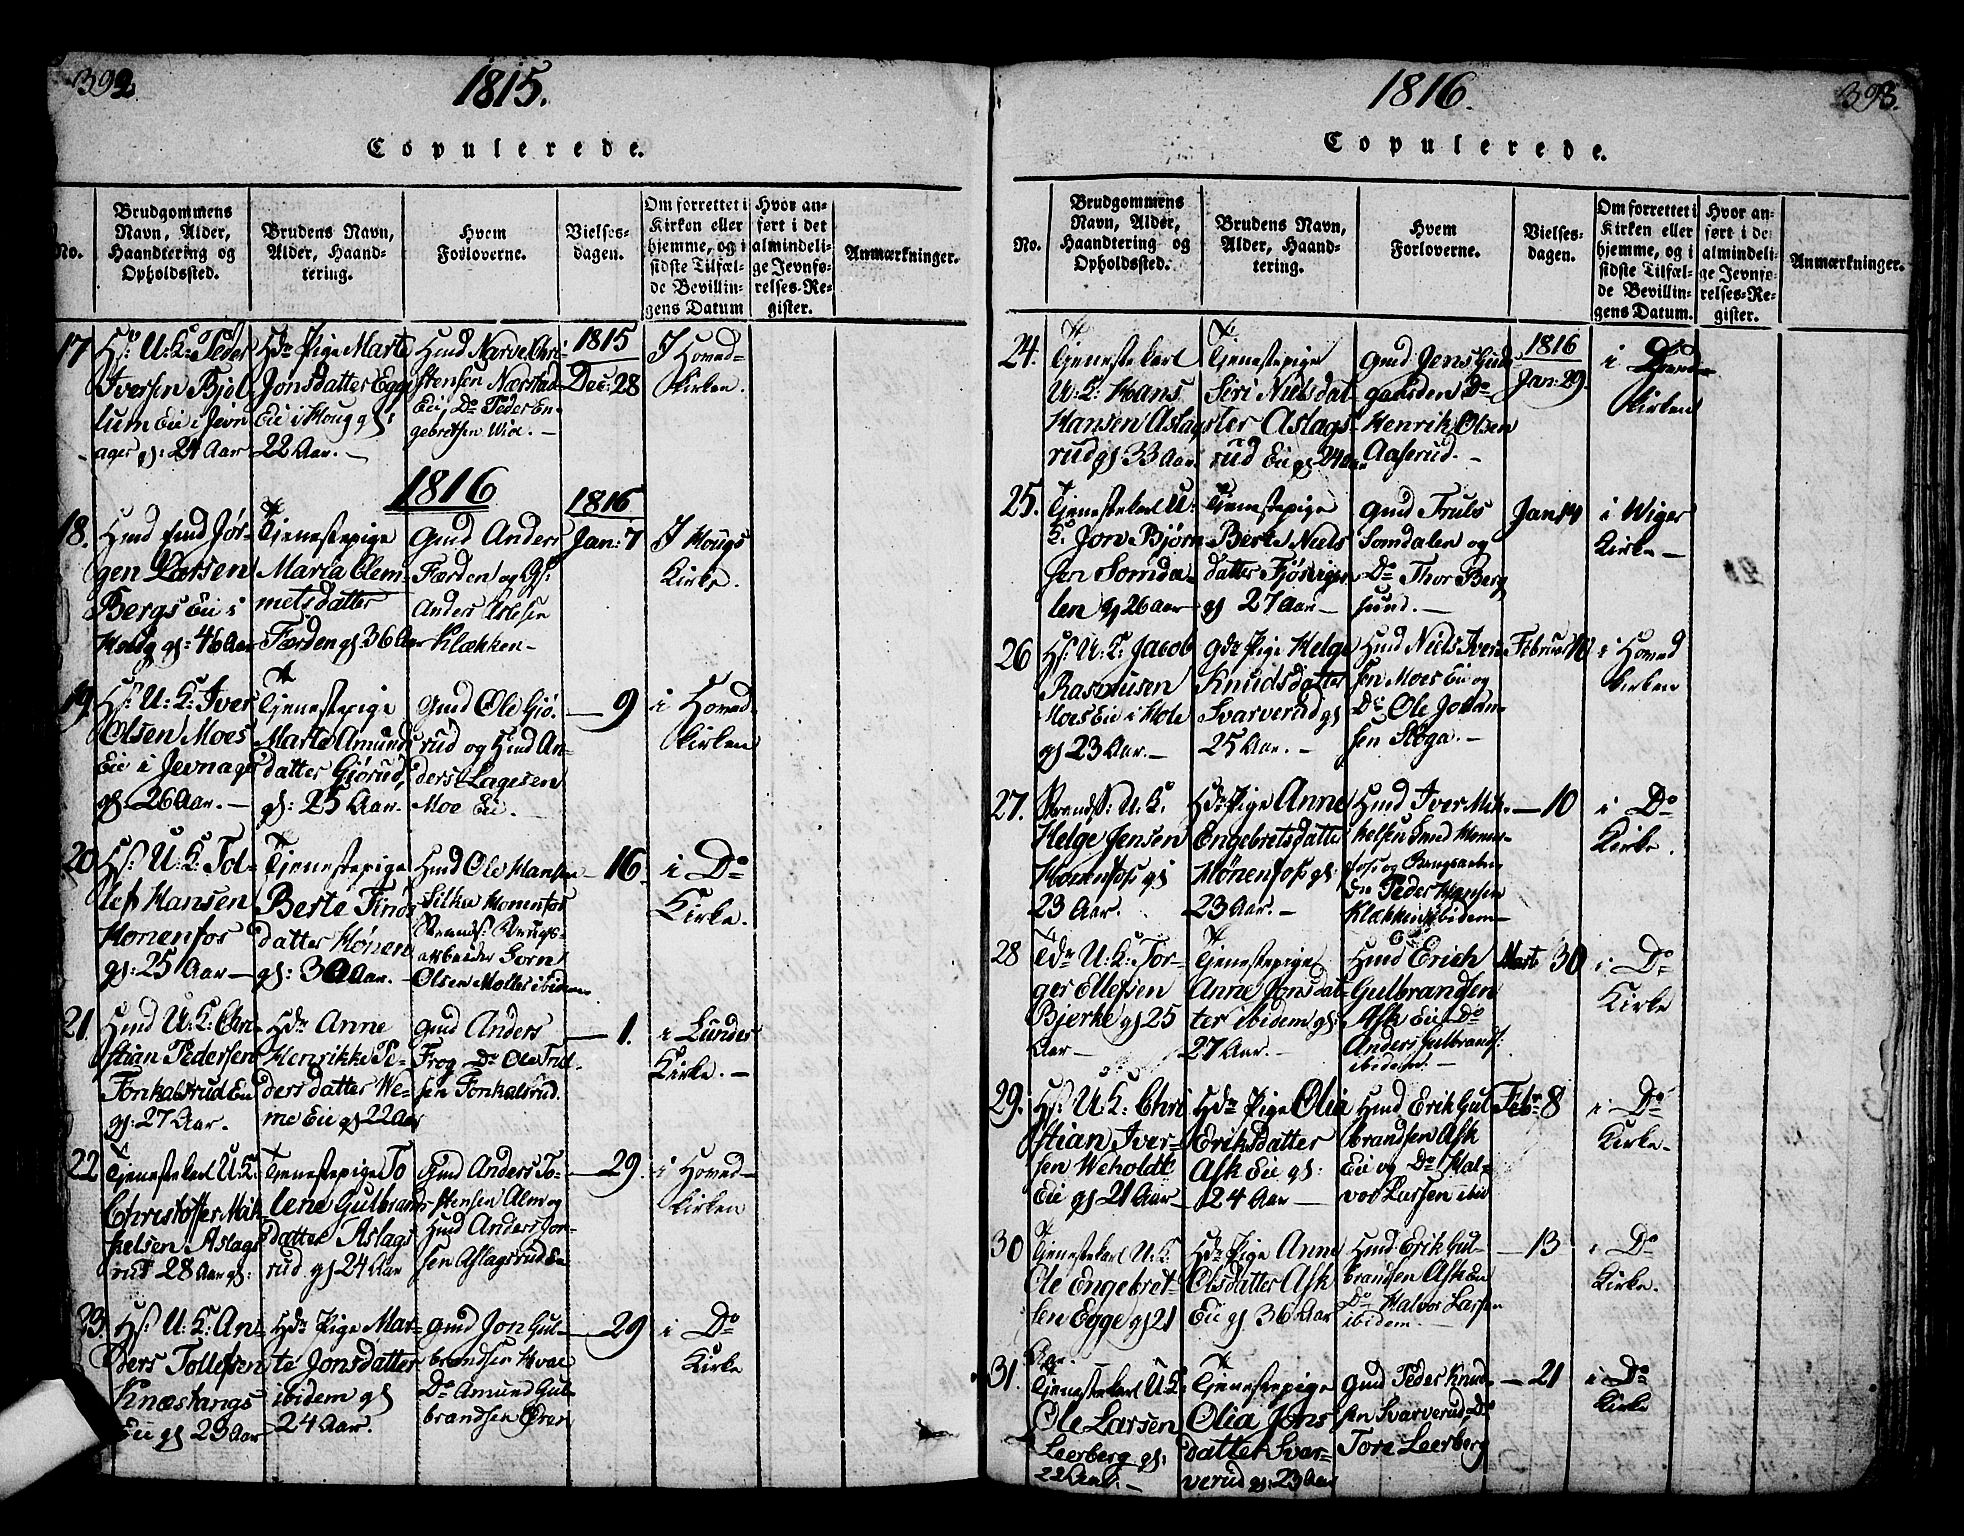 392
1815.
Copulerede.
No.
Brudgommens
Navn, Alder,
Haandtering og
Opholdssted.
Brudens Navn,
Alder, Haand-
tering.
Hvem
Forloverne.
Vielses-
dagen.
Om forrettet i
Kirken eller
hjemme, og i
sidste Tilfæl-
de Bevillin-
gens Datum
Hvor an-
ført i det
almindeli-
ge Jevnfø-
relses-Re-
gister.
Anmærkninger.
17
Hs: U: K: Peder
Iversen Bjöl
lum Eie i Jevn
ager gl: 24 Aar
Hds Pige Marte
Jonsdatter Egge
Eie i Houg gl:
22 Aar. —
Hmd Narve Chri-
stensen Nærstad
Eie, Do Peder En-
gebretsen Wiel. —
1815
Dec: 28
I Hoved-
Kirken.
1816
18.
Hmd Emd Jör-
gen Larsen
Bergs Eie i
Hole gl: 46 Aar
Tjenestepige
Maria Clem-
metsdatter
Færden gl: 36 Aar
Gmd Anders
Færden og Gs:
Anders Olsen
Klækken —
1816
Jan: 7
I Hougs
Kirke.
19.
Hs: U: K: Iver
Olsen Moes
Eie i Jevnager
gl. 26 Aar. —
Tjenestepige
Marte Amunds
datter Gjörud,
gl: 25 Aar.
Gmd Ole Gjö-
rud og Hmd An-
ders Lagesen
Moe Eie. —
— 9
i Hoved-
Kirken
20
Hs: U: K: Tol-
lef Hansen
Honenfos
gl: 25 Aar —
Tjenestepige
Berte Finds
datter Hönen
gl: 30 Aar. —
Hmd Ole Hansen
Silke Honenfos
Brends: Brugs-
arbeider Jorn
Olsen Moltes ibidem
— 16.
i Do
Kirke.
21.
Hmd U: K: Chri
stian Pedersen
Tonkalsrud Eie
gl: 27 Aar.
Hds Anne
Henrikke Pe-
dersdatter We-
me Eie gl 22 Aar
Gmd Anders
Frog, Do Ole Trul-
sen Tonkalsrud.
— 1.
i Lunder
Kirke. —
22
Tjenestekarl U: K:
Christoffer Mik-
kelsen Aslags
rud 28 Aar gl:
Tjenestepige To
lene Gulbrands
datter Aslags
rud gl 24 Aar
Gmd Anders To-
stensen Alm og
Hmd Anders Jon-
sen Aslagsrud Eie
— 29.
i Hoved-
Kirken
23.
Hs: U: K: An-
ders Tollefsen
Knæstangs
Eie gl 23 Aar
Hds Pige Mar-
te Jonsdatter
ibidem gl
24 Aar.
Gmd Jon Gul-
brandsen Hval
Do Amund Gul-
brandsen
— 29
i Do
Kirke
1816.
393.
Copulerede.
No.
Brudgommens
Navn, Alder,
Haandtering og
Opholdssted.
Brudens Navn,
Alder, Haand-
tering.
Hvem
Forloverne.
Vielses-
dagen.
Om forrettet i
Kirken eller
hjemme, og i
sidste Tilfæl-
de Bevillin-
gens Datum.
Hvor an-
ført i de
almindeli-
ge Jevnfø-
relses-Re-
gister.
Anmærkninger.
24.
Tjenestekarl
U: K: Hans
Hansen Aslags
rud gl 33 Aar
Tjenestepige
Siri Nielsdat-
ter Aslags-
rud Eie gl 24 Aar
Gmd Jens Gud
garsden Do
Henrik Olsen
Aaserud. —
1816
Jan: 29.
i
Kirken
25.
Tjenestekarl U:
K: Jon Björn
sen Somda-
len gl 26 Aar
Tjenestepige
Berte Niels
datter Fjösvigen
gl 27 Aar —
Gmd Truls
Somdalen og
Do Thor Berg
sund. —
Jan 14
i Wiger
Kirke —
26
Hs: U: K: Jacob
Rasmusen
Moes Eie i Hole
gl 23 Aar. —
Gds Pige Helge
Knudsdatter
Svarverud gl
25 Aar. —
Hmd Niels Iver-
sen Moes Eie og
Do Ole Johan-
sen Sköga. —
Februar 10
i Hoved
Kirken
27.
Brends: U: K:
Helge Jensen
Honenfos gl
23 Aar.
Hds Pige Anne
Engebretsdatter
Hönenfos gl:
23 Aar. —
Hmd Iver Mik-
kelsen Smed Honen-
fos og Brugsarbei-
der Peder Hansen
Klækken ibidem —
— 10
i Do
Kirke.
28
U: K: Tor-
ger Ellefsen
Bjerke gl 25
Aar —
Tjenestepige
Anne Jonsdat-
ter ibidem gl:
27 Aar. —
Hmd Erich
Gulbrandsen
Ask Eie Do
Anders Gulbrands:
ibidem. —
Marts 30
i Do
Kirke
29.
Hs: U: K: Chri
stian Iver-
sen Weholdt
Eie gl 21 Aar
Hds Pige Olia
Eriksdatter
Ask Eie gl:
24 Aar —
Hmd Erik Gul
brandsen Ask
Eie og Do Hal-
vor Larsen ibid
Febr 8
i Do
Kirke.
30
Tjenestekarl U: K:
Ole Engebret-
sen Egge gl 21
Aar.
Hds Pige Anne
Olsdatter Ask
Eie gl 36 Aar
Hmd Erik Gul-
brandsen Ask Eie
Do Halvor Larsen
ibidem —
— 13
i Do
Kirke.
31.
Tjenestekarl U: K:
Ole Larsen
Leerberg gl:
22 Aar. —
Tjenestepige
Olia Jons
datter Svar-
verud gl: 23 Aar
Gmd Peder Knud-
sen Svarverud, Do
Tore Leerberg
— 21
i Do
Kirke